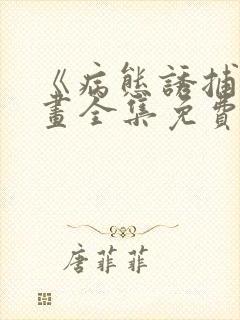 《病態誘捕
畫全集免費
唐菲菲